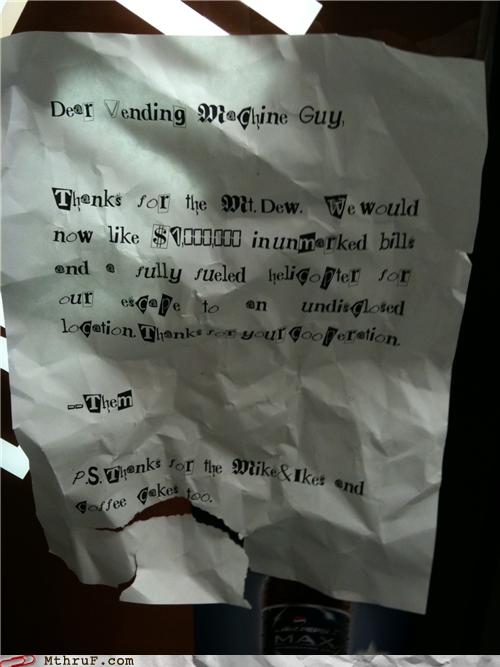 Dear Vending Machine Guy,
Thanks for the Mt. Dew. We would
now like $1,000,000 in unmarked bills
and a fully fueled helicopter for
our escape to an undisclosed
location. Thanks for your cooperation.
--Them
P.S. Thanks for the Mike&Ikes and
Coffee Cakes too.
pepsi
MAX
MThruF.com